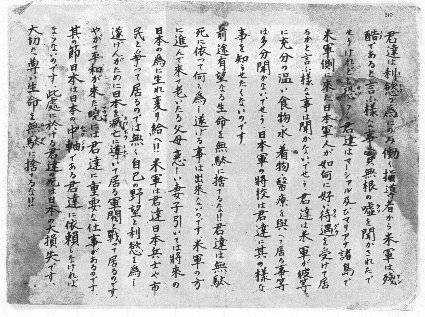 君達は利慾の為にのみ働く指導者から米軍は殘
酷であると言ふ様な事實無根の嘘を聞かされたで
せうけれども恐らく君達はマーシアル及びマリアナ諸島で
米軍側に来た日本軍人が如何に好い待遇を受けて居
るかと言ふ様な事は聞かないでせう君達は米軍が彼等
に充分の温い食物水着物醫療を與へて居る事等
は多分聞かないでせう日本軍の將校は君達に其の様な
事を知らせたくないのです
前途有望なる生命を無駄に捨てるな!!君達は無駄
死に依って何らの為遂げる事は出来ないのです米軍の方
に進んで来い老いたる父母悲しい妻子引いては將来の
日本の為に生れ変り給へ!!米軍は君達日本兵士や市
民と爭って居るのでは無く自己の野望と利慾を為し
遂げんがために日本を滅亡に導いて居る軍閥と戰って居るのです
やがて平和が来た曉には君達に重要な仕事があるのです
其の節日本は日本の中軸である君達に依頼しなければ
ならないのです此處に於ける君達の死は日本の大損失です
大切な尊い生命を無駄に捨るな!!